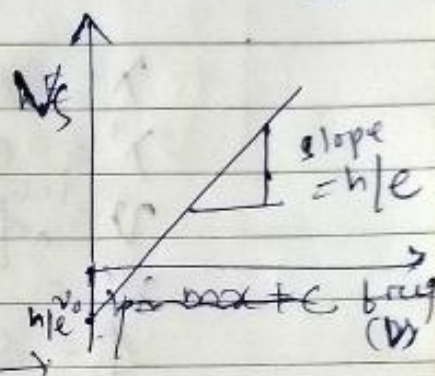 Vs
slope
= h/e
h/e ν₀
y = mx + c freq
(ν)